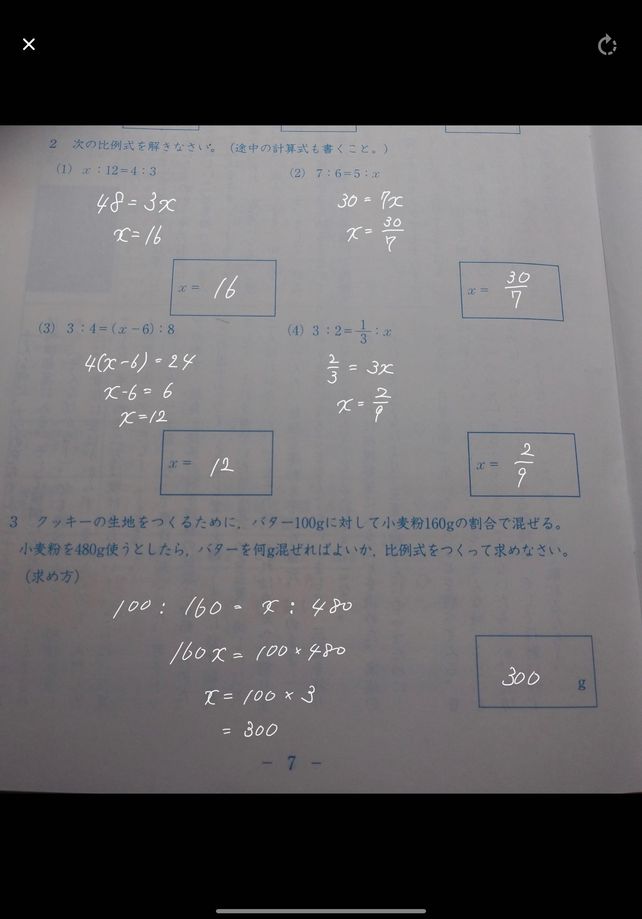 2 次の比例式を解きなさい。(途中の計算式も書くこと。)
(1) x:12=4:3
(2) 7:6=5:x
48=3x
x=16
30=7x
x=30/7
x= 16
x= 30/7
(3) 3:4=(x-6):8
(4) 3:2=1/3:x
4(x-6)=24
x-6=6
x=12
2/3=3x
x=2/9
x= 12
x= 2/9
3 クッキーの生地をつくるために,バター100gに対して小麦粉160gの割合で混ぜる。
小麦粉を480g使うとしたら,バターを何g混ぜればよいか,比例式をつくって求めなさい。
(求め方)
100:160=x:480
160x=100×480
x=100×3
=300
300 g
- 7 -